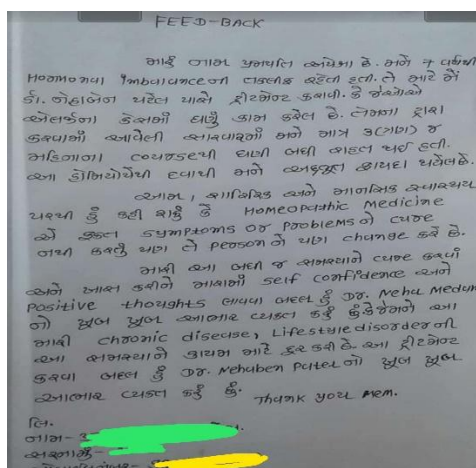 FEED-BACK
મારું નામ પ્રજ્ઞપતિ છે. મને 7 વર્ષથી
Hormonal Imbalance ની તકલીફ રહેતી હતી. તે માટે મેં
ડૉ. નેહાબેન પટેલ પાસે ટ્રીટમેન્ટ કરાવી. કે જેઓએ
એલર્જીના કેસમાં ઘણું કામ કરેલ છે. તેમના દ્વારા
કરવામાં આવેલી સારવારમાં મને માત્ર 3(ત્રણ) જ
મહિનાના course થી ઘણી બધી રાહત થઈ હતી.
આ હોમિયોપેથી દવાથી મને અદ્ભુત ફાયદા થયેલ છે.
આમ, શારિરિક અને માનસિક સ્વાસ્થ્ય
પરથી હું કહી શકું કે Homeopathic Medicine
એ ફક્ત symptoms or problems ને cure
નથી કરતું પણ તે person ને પણ change કરે છે.
મારી આ બધી જ સમસ્યાને cure કરવા
અને ખાસ કરીને મારામાં self confidence અને
positive thoughts લાવવા બદલ હું Dr. Neha Medum
નો ખૂબ ખૂબ આભાર વ્યક્ત કરું છું કે જેમને આ
મારી chronic disease, Lifestyle disorder ની
આ સમસ્યાને કાયમ માટે દૂર કરી છે. આ ટ્રીટમેન્ટ
કરવા બદલ હું Dr. Nehaben Patel નો ખૂબ ખૂબ
આભાર વ્યક્ત કરું છું.
Thank you Mem.
લિ.
નામ-
સરનામું-